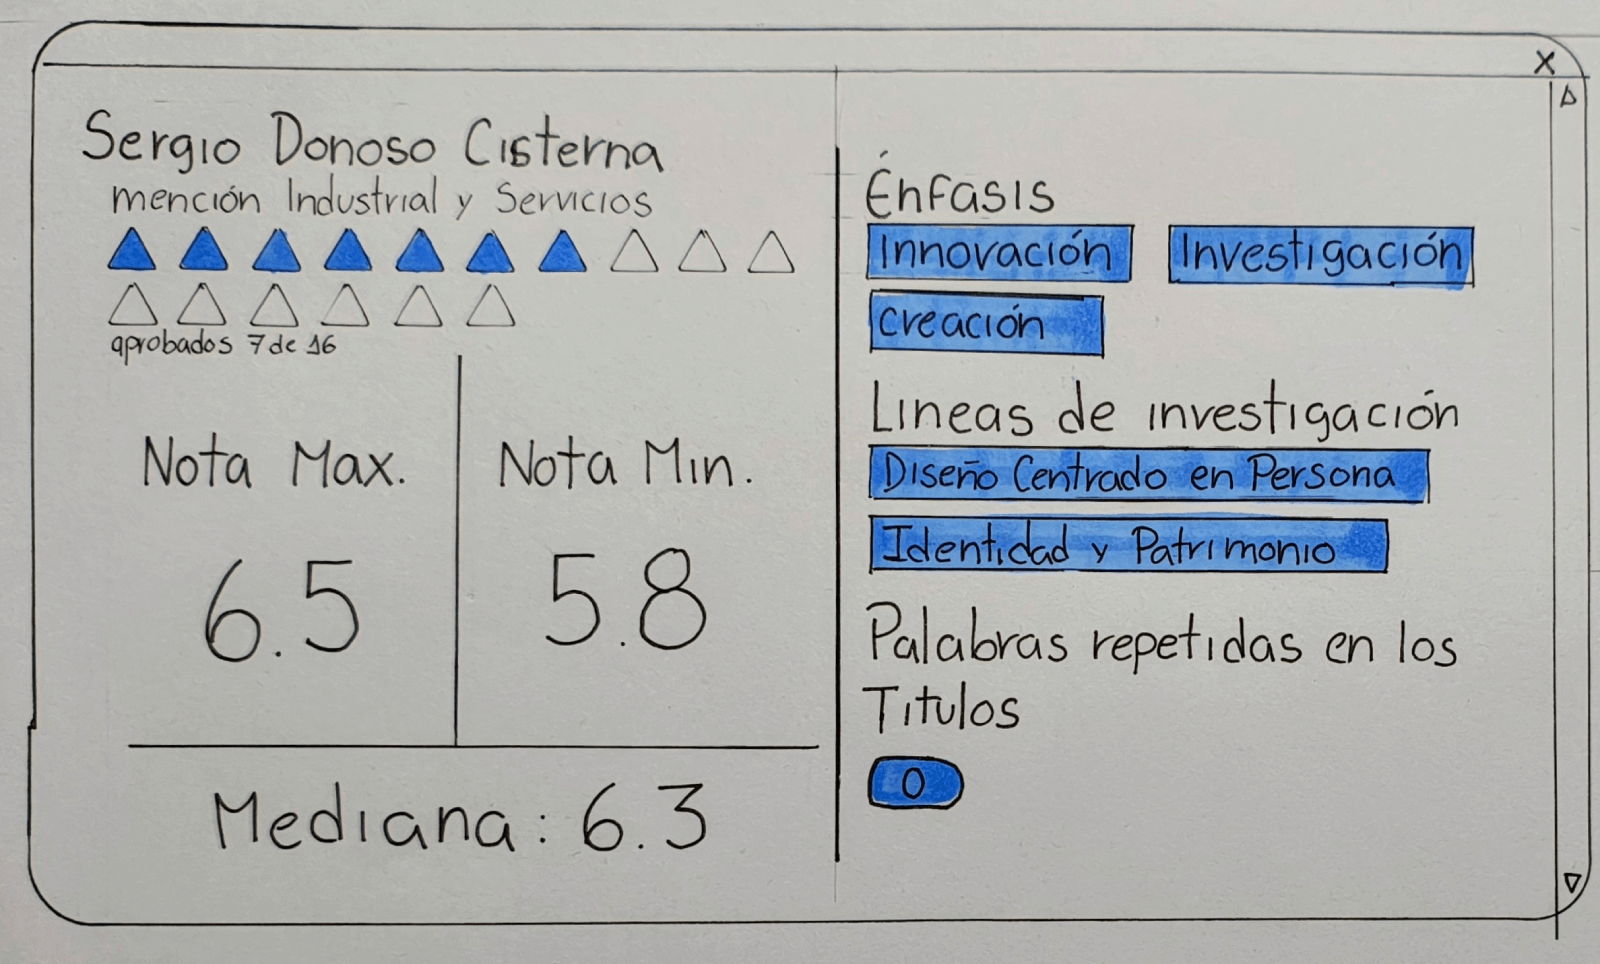 X
Sergio Donoso Cisterna
mención Industrial y Servicios
aprobados 7 de 16
Nota Max.
6.5
Nota Min.
5.8
Mediana: 6.3
Énfasis
Innovación
Investigación
creación
Lineas de investigación
Diseño Centrado en Persona
Identidad y Patrimonio
Palabras repetidas en los
Titulos
0